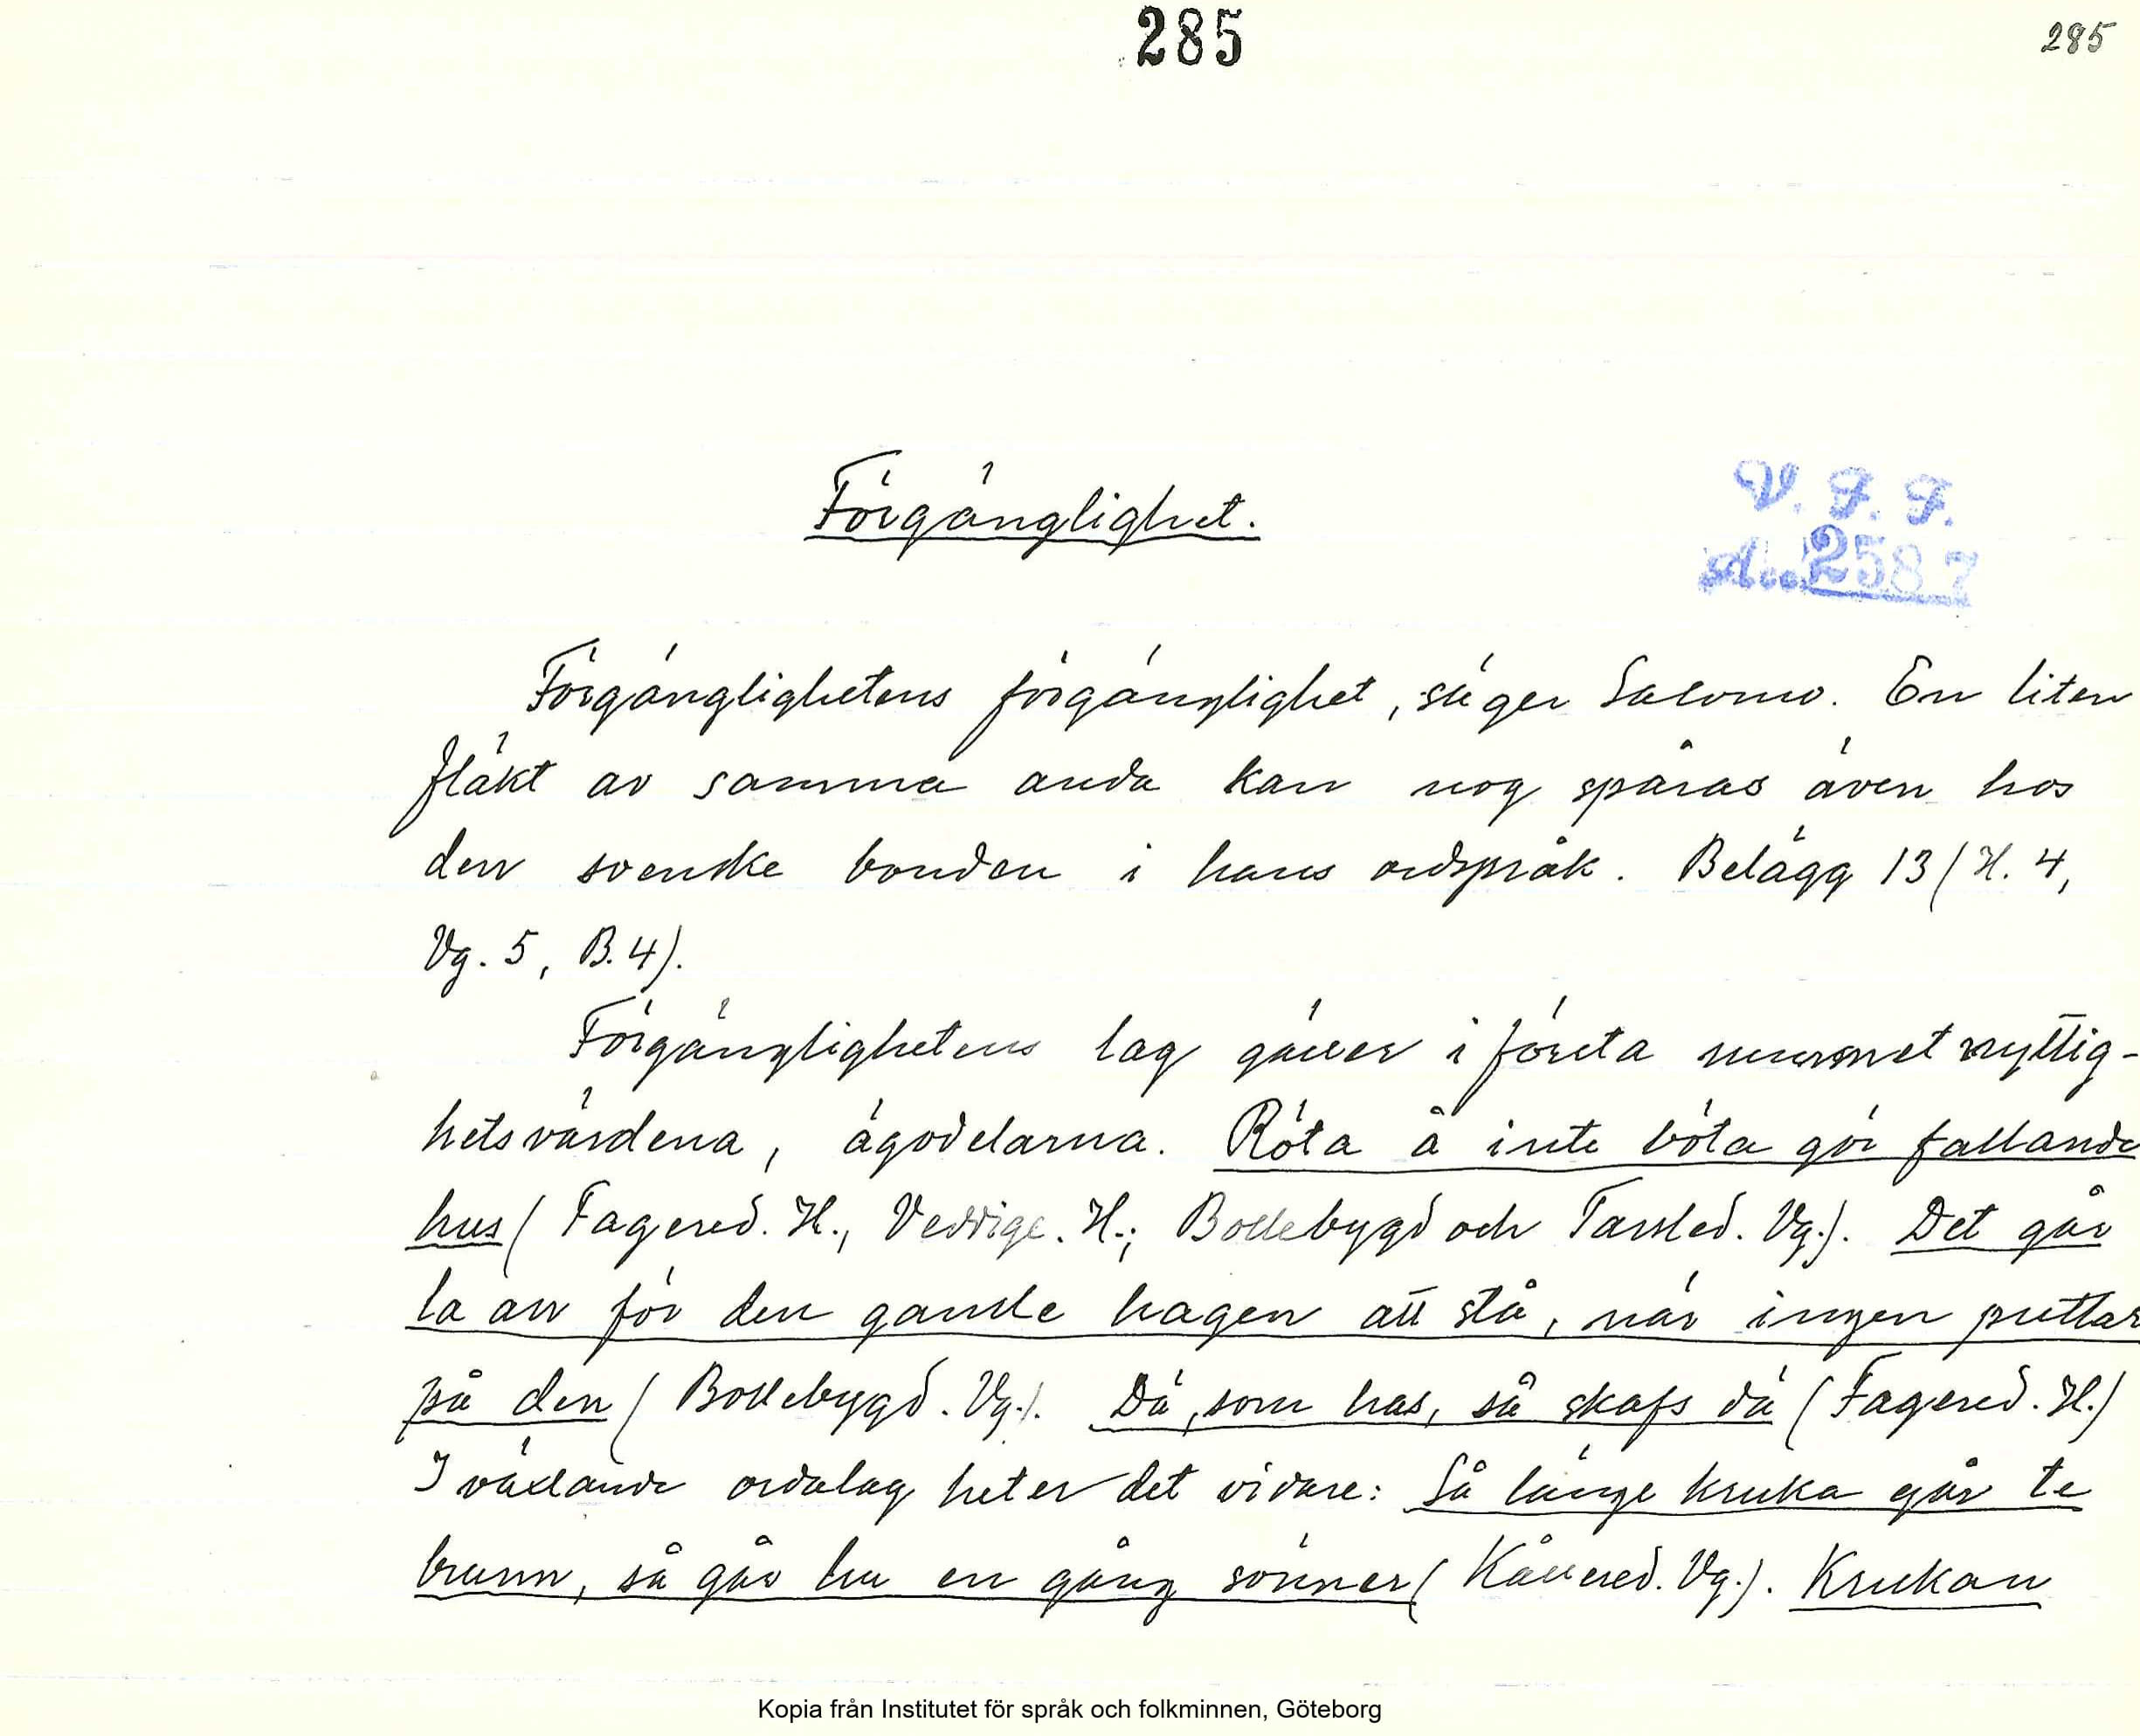 285
285
Förgänglighet.
V. F. F.
Acc. 2587
Förgänglighetens förgänglighet, säger Salomo. En liten
fläkt av samma anda kan nog spåras även hos
den svenske bonden i hans ordspråk. Belägg 13 (H. 4,
Vg. 5, B. 4).
Förgänglighetens lag gäller i första rummet nyttig-
hetsvärdena, ägodelarna. Röta å inte böta gör fallande
hus (Fagered. H., Veddige. H.; Bollebygd och Tarsled. Vg.). Det går
la an för den gamle hagen att stå, när ingen puttar
på den (Bollebygd. Vg.). Dä, som has, så skafs dä (Fagered. H.)
I växlande ordalag heter det vidare: Så länge kruka går te
brunn, så går hu en gång sönner (Kållered. Vg.). Krukan
Kopia från Institutet för språk och folkminnen, Göteborg